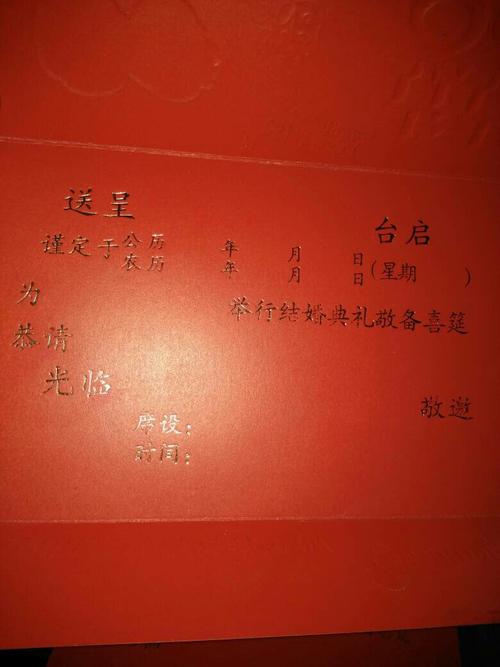 送呈 台启
谨定于公历 年 月 日
农历 年 月 日(星期 )
为 举行结婚典礼敬备喜筵
恭请
光临 敬邀
席设:
时间: